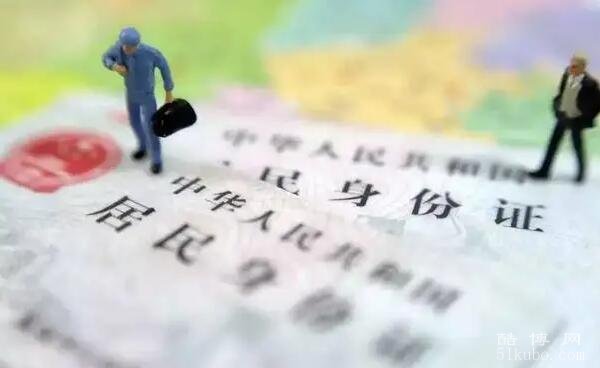 中华人民共和国
民身份证
中华人民共和国
居民身份
酷博网
51kubo.com